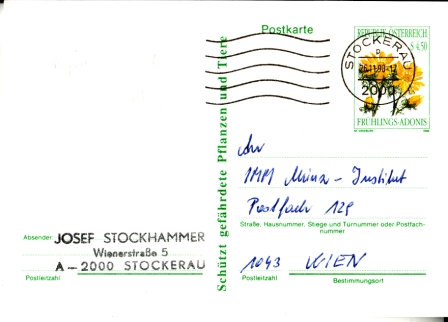 Postkarte
REPUBLIK ÖSTERREICH
S 4,50
FRÜHLINGS-ADONIS
STOCKERAU
2000
Schützt gefährdete Pflanzen und Tiere
An
IMM Mira-Institut
Postfach 129
Straße, Hausnummer, Stiege und Türnummer oder Postfach-
nummer
Absender: JOSEF STOCKHAMMER
Wienerstraße 5
A-2000 STOCKERAU
Postleitzahl
1043 WIEN
Postleitzahl Bestimmungsort